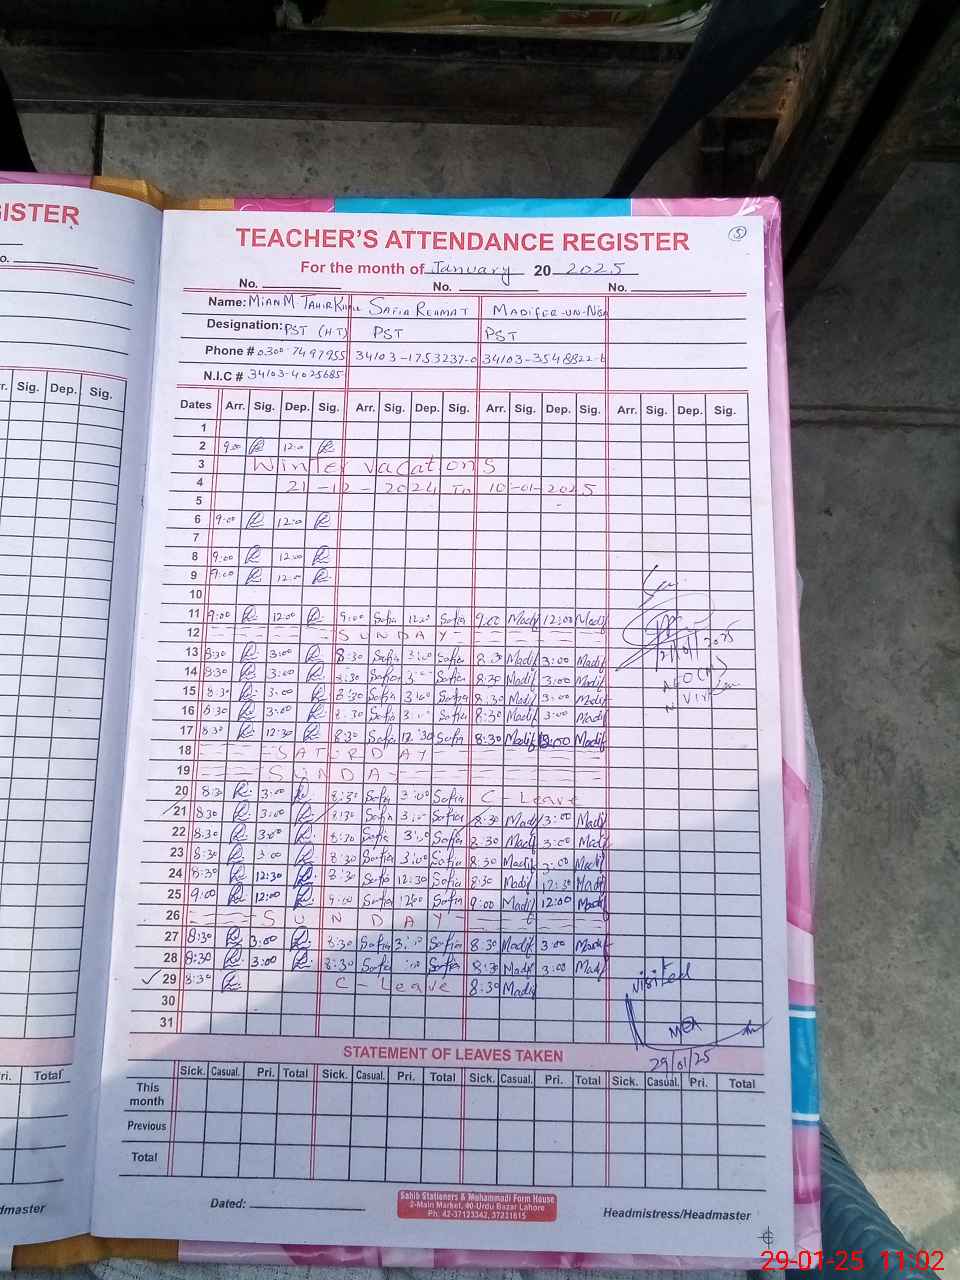 GISTER
TEACHER'S ATTENDANCE REGISTER
5
For the month of January 20 2025
No. No. No.
Name: MIAN M. TAHIR SAFIA REHMAT MADIFER-UN-NISA
Designation: PST (H.T) PST PST
Phone # 0300-7497955 34103-1753237-0 34103-3548822-6
N.I.C # 34103-4025685
r. Sig. Dep. Sig.
Dates Arr. Sig. Dep. Sig. Arr. Sig. Dep. Sig. Arr. Sig. Dep. Sig. Arr. Sig. Dep. Sig.
1
2 9:00 12:00
3 Winter vacations
4 21-12-2024 To 10-01-2025
5
6 9:00 12:00
7
8 9:00 12:00
9 9:00 12:00
10
11 9:00 12:00 9:00 Safia 12:00 Safia 9:00 Madif 12:00 Madif
12 SUNDAY
13 8:30 3:00 8:30 Safia 3:00 Safia 8:30 Madif 3:00 Madif
14 8:30 3:00 8:30 Safia 3:00 Safia 8:30 Madif 3:00 Madif
15 8:30 3:00 8:30 Safia 3:00 Safia 8:30 Madif 3:00 Madif
16 8:30 3:00 8:30 Safia 3:00 Safia 8:30 Madif 3:00 Madif
17 8:30 12:30 8:30 Safia 12:30 Safia 8:30 Madif Madif
18 SATURDAY
19 SUNDAY
20 8:30 3:00 8:30 Safia 3:00 Safia C-Leave
21 8:30 3:00 8:30 Safia 3:00 Safia 8:30 Madif 3:00 Madif
22 8:30 3:00 8:30 Safia 3:00 Safia 8:30 Madif 3:00 Madif
23 8:30 3:00 8:30 Safia 3:00 Safia 8:30 Madif 3:00 Madif
24 8:30 12:30 8:30 Safia 12:30 Safia 8:30 Madif 12:30 Madif
25 9:00 12:00 9:00 Safia 1200 Safia 9:00 Madif 12:00 Madif
26 SUNDAY
27 8:30 3:00 8:30 Safia 3:00 Safia 8:30 Madif 3:00 Madif
28 8:30 3:00 8:30 Safia :00 Safia 8:30 Madif 3:00 Madif
29 8:30 C-Leave 8:30 Madif
30
31
21/01/2025
AEO(M)
Visited
MEA
29/01/25
STATEMENT OF LEAVES TAKEN
ri. Total
Sick. Casual. Pri. Total Sick. Casual. Pri. Total Sick. Casual. Pri. Total Sick. Casual. Pri. Total
This month
Previous
Total
dmaster
Dated:
Sahib Stationers & Muhammadi Form House
2-Main Market, 40-Urdu Bazar Lahore
Ph. 42-37123342, 37231615
Headmistress/Headmaster
29-01-25 11:02